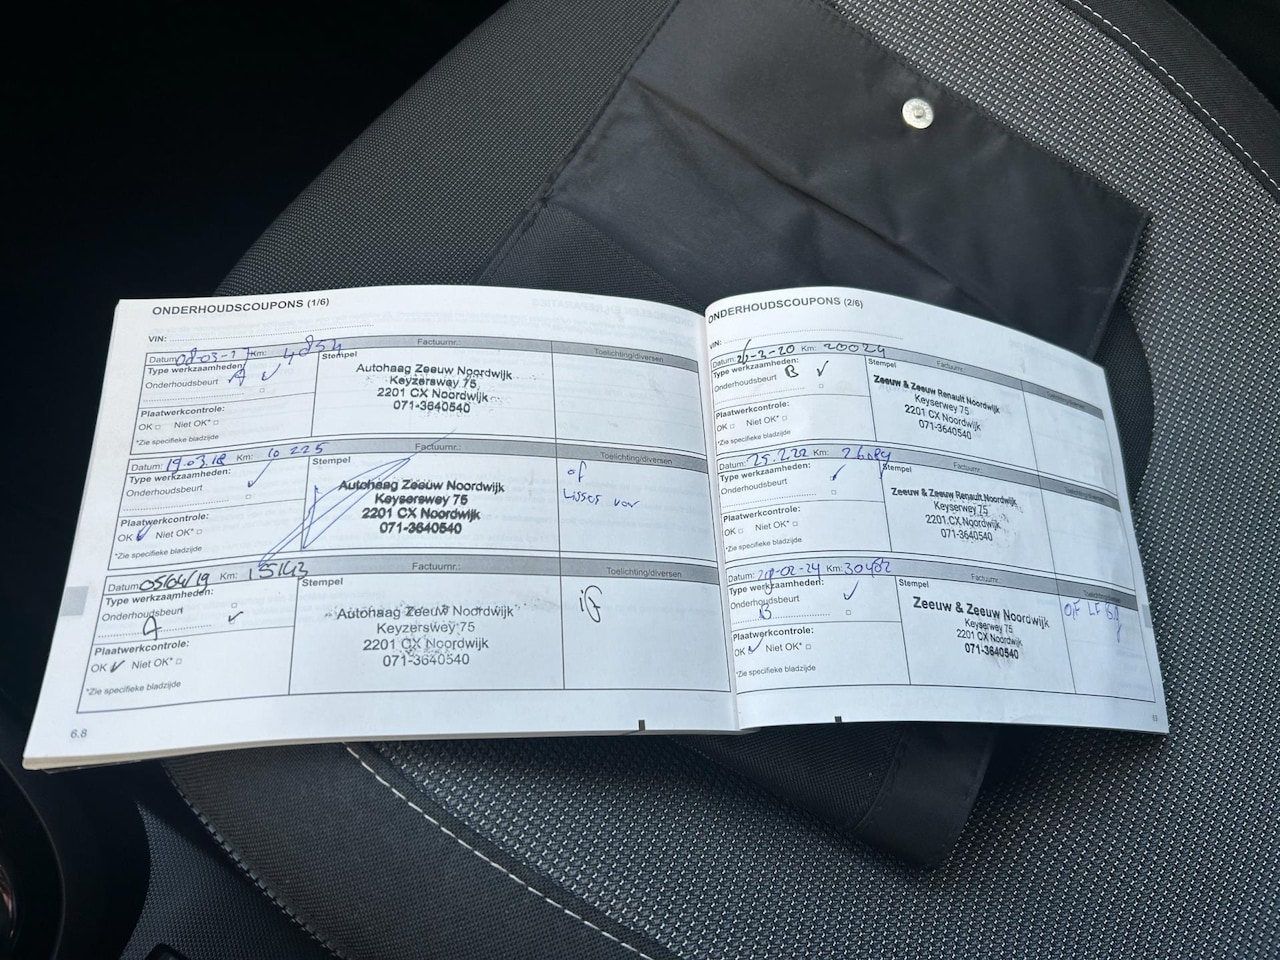 ONDERHOUDSCOUPONS (1/6)
VIN:
Datum: 08-03-17 Km: 4854 Factuurnr.: Toelichting/diversen
Type werkzaamheden: Stempel
Onderhoudsbeurt A ✓
Autohaag Zeeuw Noordwijk
Keyzersway 75
2201 CX Noordwijk
071-3640540
Plaatwerkcontrole:
OK □ Niet OK* □
*Zie specifieke bladzijde
Datum: 19.03.18 Km: 10 225 Factuurnr.: Toelichting/diversen
Type werkzaamheden: Stempel
Onderhoudsbeurt ✓
Autohaag Zeeuw Noordwijk
Keyserswey 75
2201 CX Noordwijk
071-3640540
of
Plaatwerkcontrole:
OK ✓ Niet OK* □
*Zie specifieke bladzijde
Datum: 05/04/19 Km: 15143 Factuurnr.: Toelichting/diversen
Type werkzaamheden: Stempel
Onderhoudsbeurt □
A ✓
Autohaag Zeeuw Noordwijk
Keyzersway 75
2201 CX Noordwijk
071-3640540
Plaatwerkcontrole:
OK ✓ Niet OK* □
*Zie specifieke bladzijde
6.8
ONDERHOUDSCOUPONS (2/6)
VIN:
Datum: 26-2-20 Km: 20024 Factuurnr.:
Type werkzaamheden: Stempel
Onderhoudsbeurt B ✓
Zeeuw & Zeeuw Renault Noordwijk
Keyserwey 75
2201 CX Noordwijk
071-3640540
Plaatwerkcontrole:
OK □ Niet OK* □
*Zie specifieke bladzijde
Datum: 25.2.22 Km: Factuurnr.:
Type werkzaamheden: Stempel
Onderhoudsbeurt ✓
Zeeuw & Zeeuw Renault Noordwijk
Keyserwey 75
2201 CX Noordwijk
071-3640540
Plaatwerkcontrole:
OK □ Niet OK* □
*Zie specifieke bladzijde
Datum: Km: 30482 Factuurnr.:
Type werkzaamheden: Stempel
Onderhoudsbeurt ✓
B □
Zeeuw & Zeeuw Noordwijk
Keyserswey 75
2201 CX Noordwijk
071-3640540
OF LF
Plaatwerkcontrole:
OK ✓ Niet OK* □
*Zie specifieke bladzijde